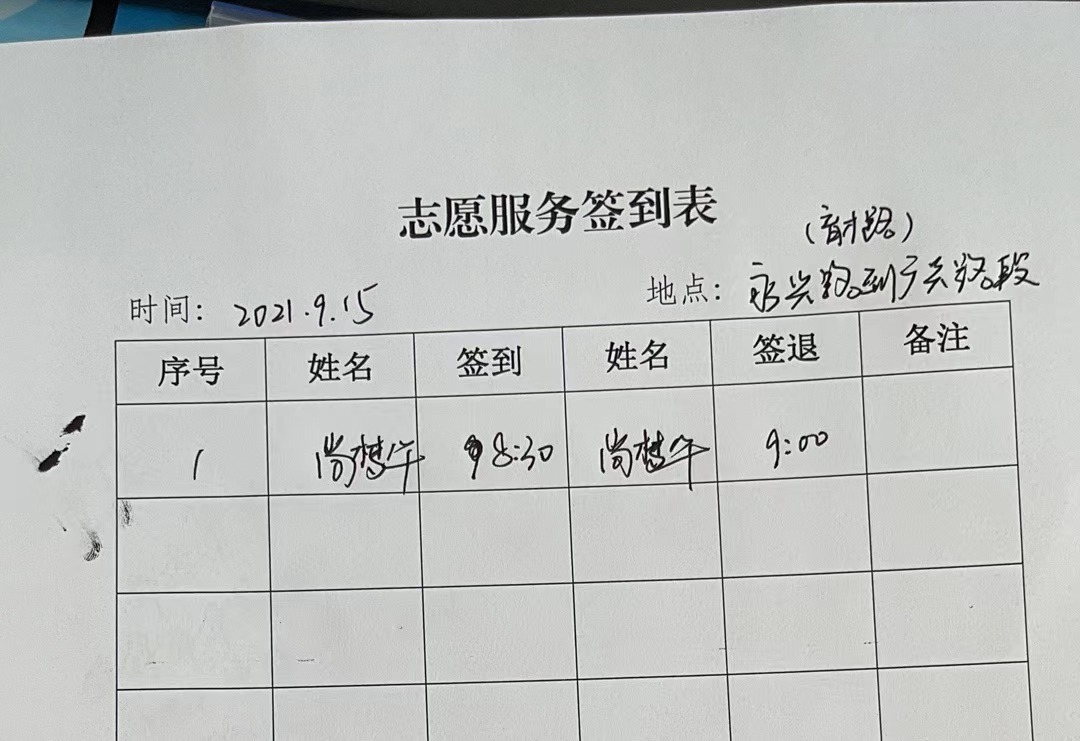 志愿服务签到表
时间: 2021.9.15
地点: 永兴路到广兴路段
序号 姓名 签到 姓名 签退 备注
1 尚梦午 8:30 尚梦午 9:00